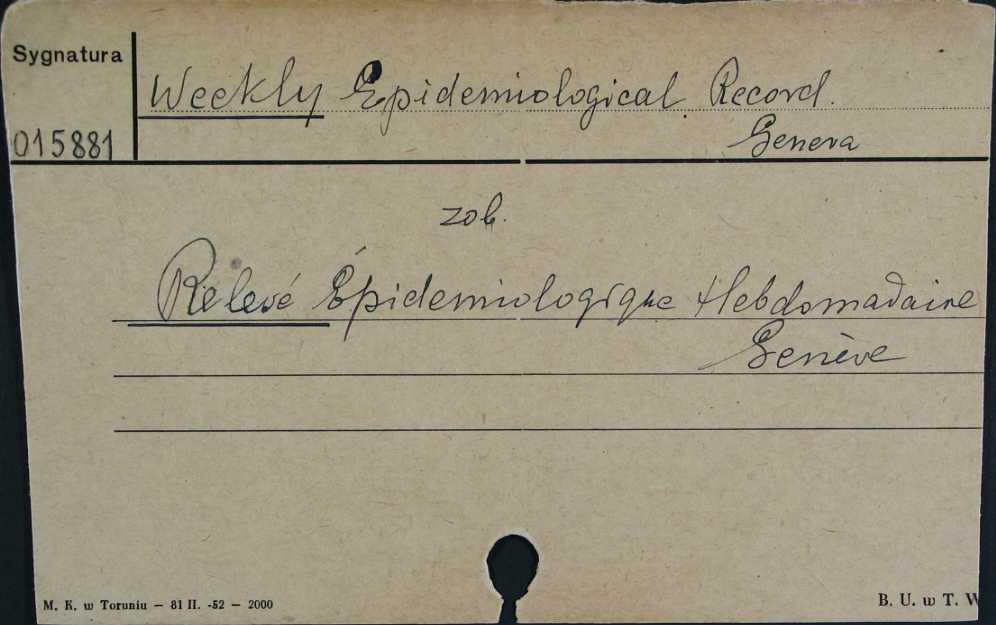 Sygnatura
015881
Weekly Epidemiological Record.
Geneva
zob.
Relevé Épidemiologique Hebdomadaire
Genève
M. K. w Toruniu — 81 II. -52 — 2000
B. U. w T. W